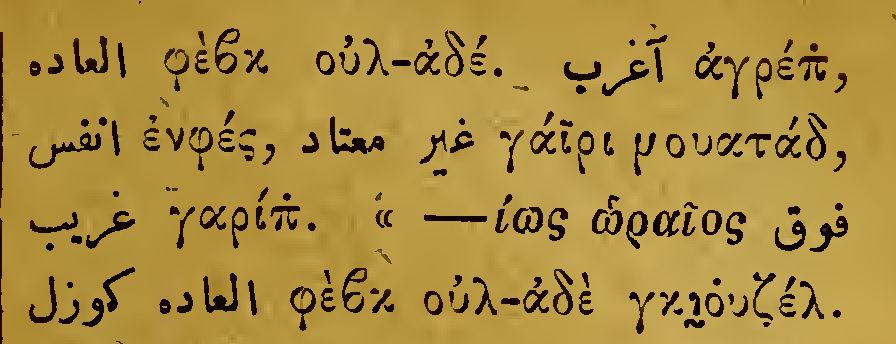 العاده φὲβκ οὐλ-ἀδέ. آغرب ἀγρέπ̇,
انفس ἐνφές, غير معتاد γάϊρι μουατάδ,
غريب γαρίπ̇. « —ίως ὡραῖος فوق
العاده φὲβκ οὐλ-ἀδὲ γκιοὐζέλ. كوزل